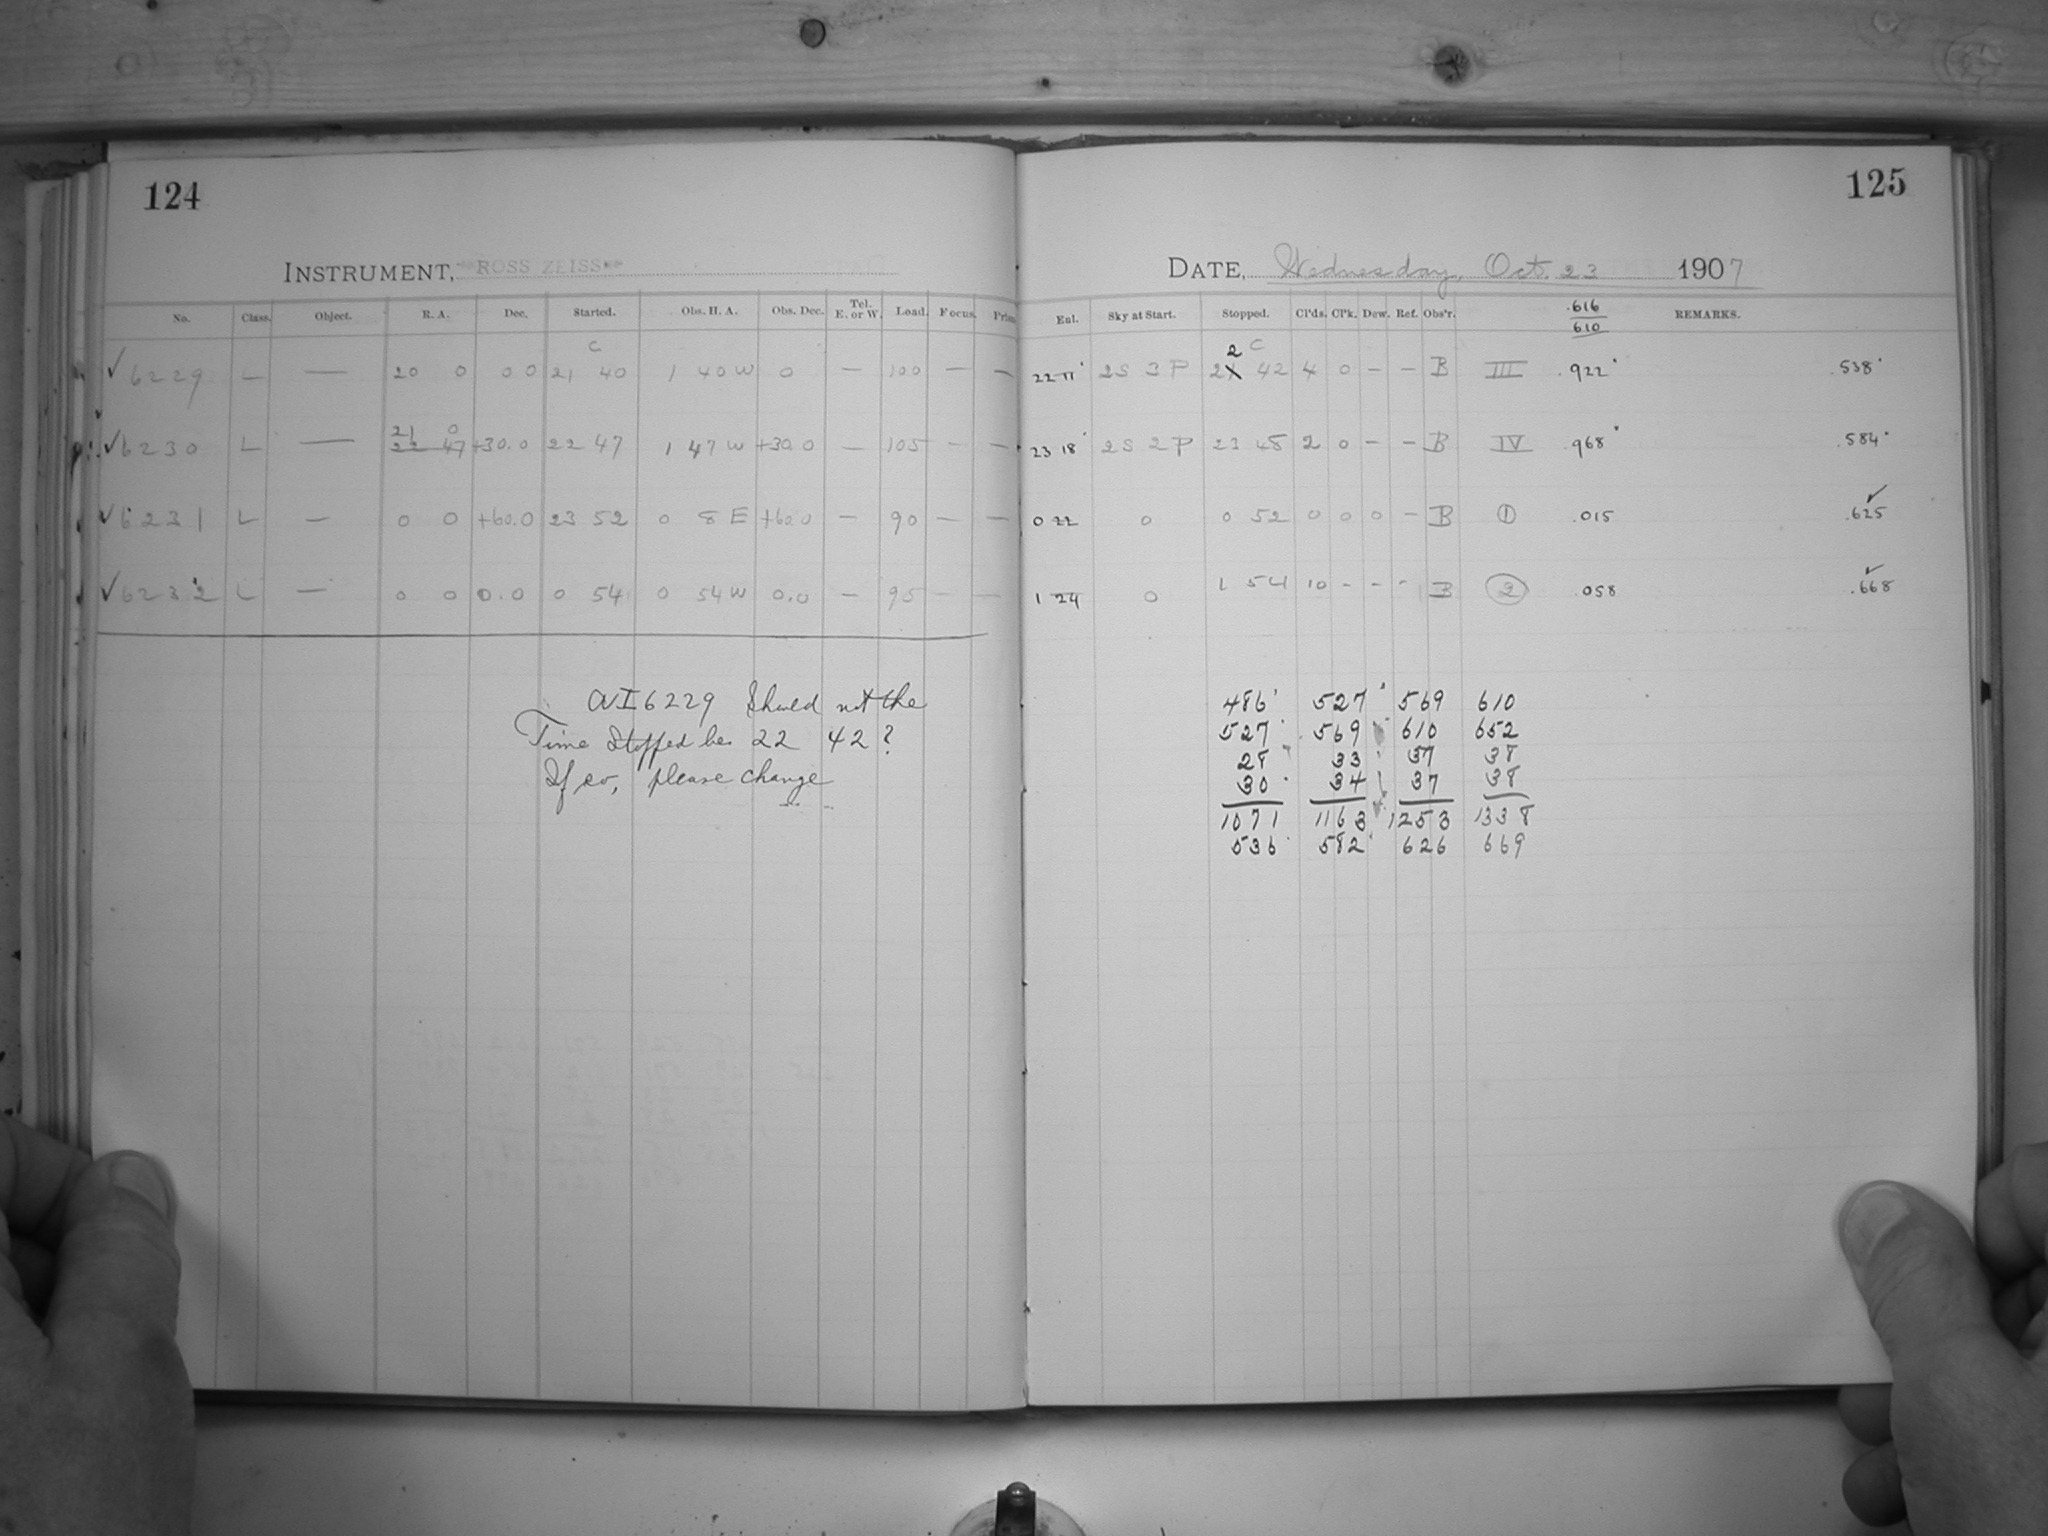 124
INSTRUMENT, ROSS ZEISS
No. Class. Object. R. A. Dec. Started. Obs. H. A. Obs. Dec. Tel. E. or W. Load. Focus.
C
✓ 6229 L — 20 0 0 0 21 40 1 40 W 0 — 100 — —
21 0
✓ 6230 L — 22 47 +30.0 22 47 1 47 W +30.0 — 105 — —
✓ 6231 L — 0 0 +60.0 23 52 0 8 E +60.0 — 90 — —
✓ 6232 L — 0 0 0.0 0 54 0 54 W 0.0 — 95 — —
AI 6229 Should not the
Time Stopped be 22 42?
If so, please change
125
DATE, Wednesday, Oct. 23 1907
Eal. Sky at Start. Stopped. Cl'ds. Cl'k. Dew. Ref. Obs'r. .616 REMARKS.
610
2 C
22 11 2S 3P 21 42 4 0 – – B III .922 .538
23 18 2S 2P 23 48 2 0 – – B IV .968 .584
0 22 0 0 52 0 0 0 – B ① .015 .625 ✓
1 24 0 1 54 10 – – – B ② .058 .668 ✓
486 527 569 610
527 569 610 652
28 33 37 38
30 34 37 38
1071 1163 1253 1338
536 582 626 669